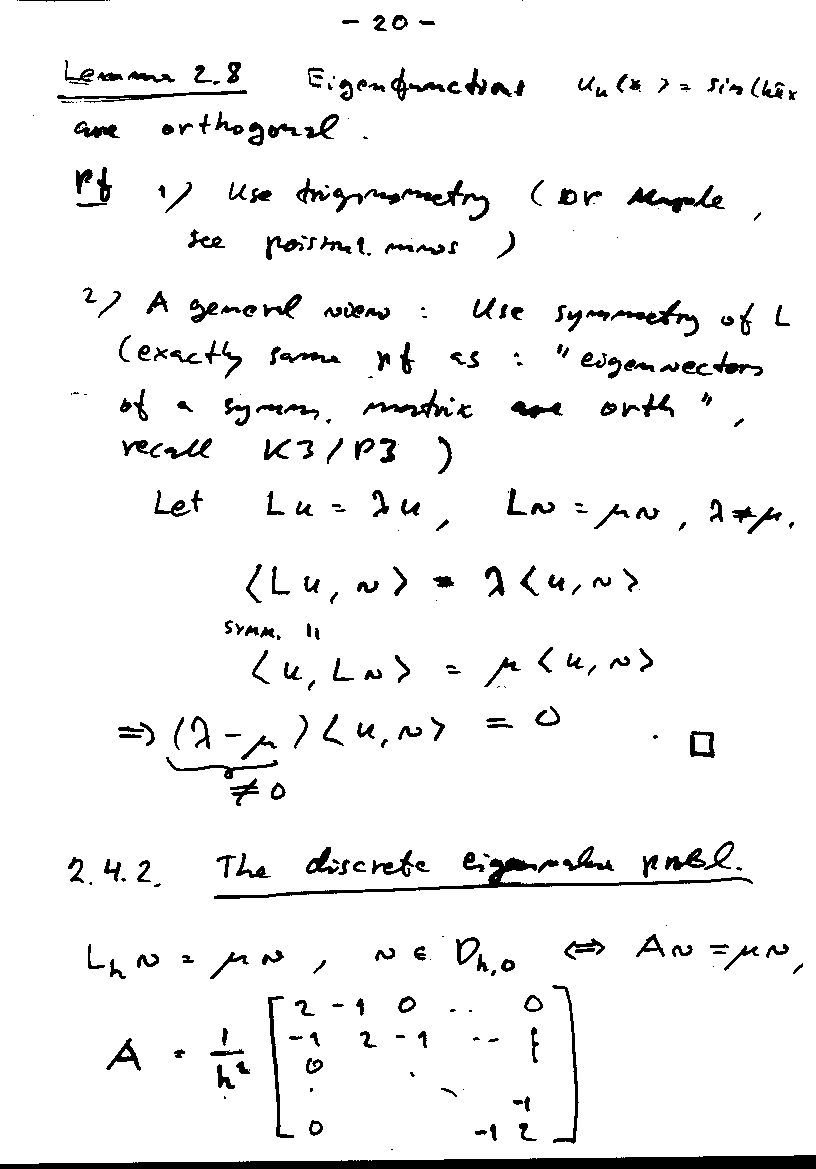 - 20 -
Lemma 2.8 Eigenfunctions u_k(x) = sin(kπx
are orthogonal.
Pf 1) Use trigonometry (or Maple,
see )
2) A general view : Use symmetry of L
(exactly same pf as : "eigenvectors
of a symm. matrix are orth",
recall K3/P3 )
Let Lu = λu, Lv = μv, λ≠μ.
⟨Lu, v⟩ = λ⟨u, v⟩
symm. ||
⟨u, Lv⟩ = μ⟨u, v⟩
⇒ (λ-μ)⟨u, v⟩ = 0 . □
≠0
2.4.2. The discrete eigenvalue probl.
L_h v = μv, v ∈ D_{h,0} ⇔ Av = μv,
2 -1 0 .. 0
-1 2 -1 ..
A = 1/h²
0
-1
0 -1 2